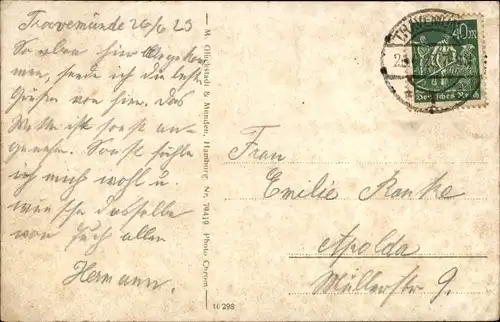 Travemünde 26/6 23
So eben hier angekom
men, sende ich die besten
Grüße von hier. Das
Wetter ist sonst an-
genehm. Sonst fühle
ich mich wohl u.
wünsche dasselbe
von Euch allen
Hermann.
M. Glückstadt & Münden, Hamburg. No. 79419 Photo Chrom
10 298
TRAVEMÜNDE
40 M
Deutsches Reich
Frau
Emilie Ranke
Apolda
Müllerstr 9.